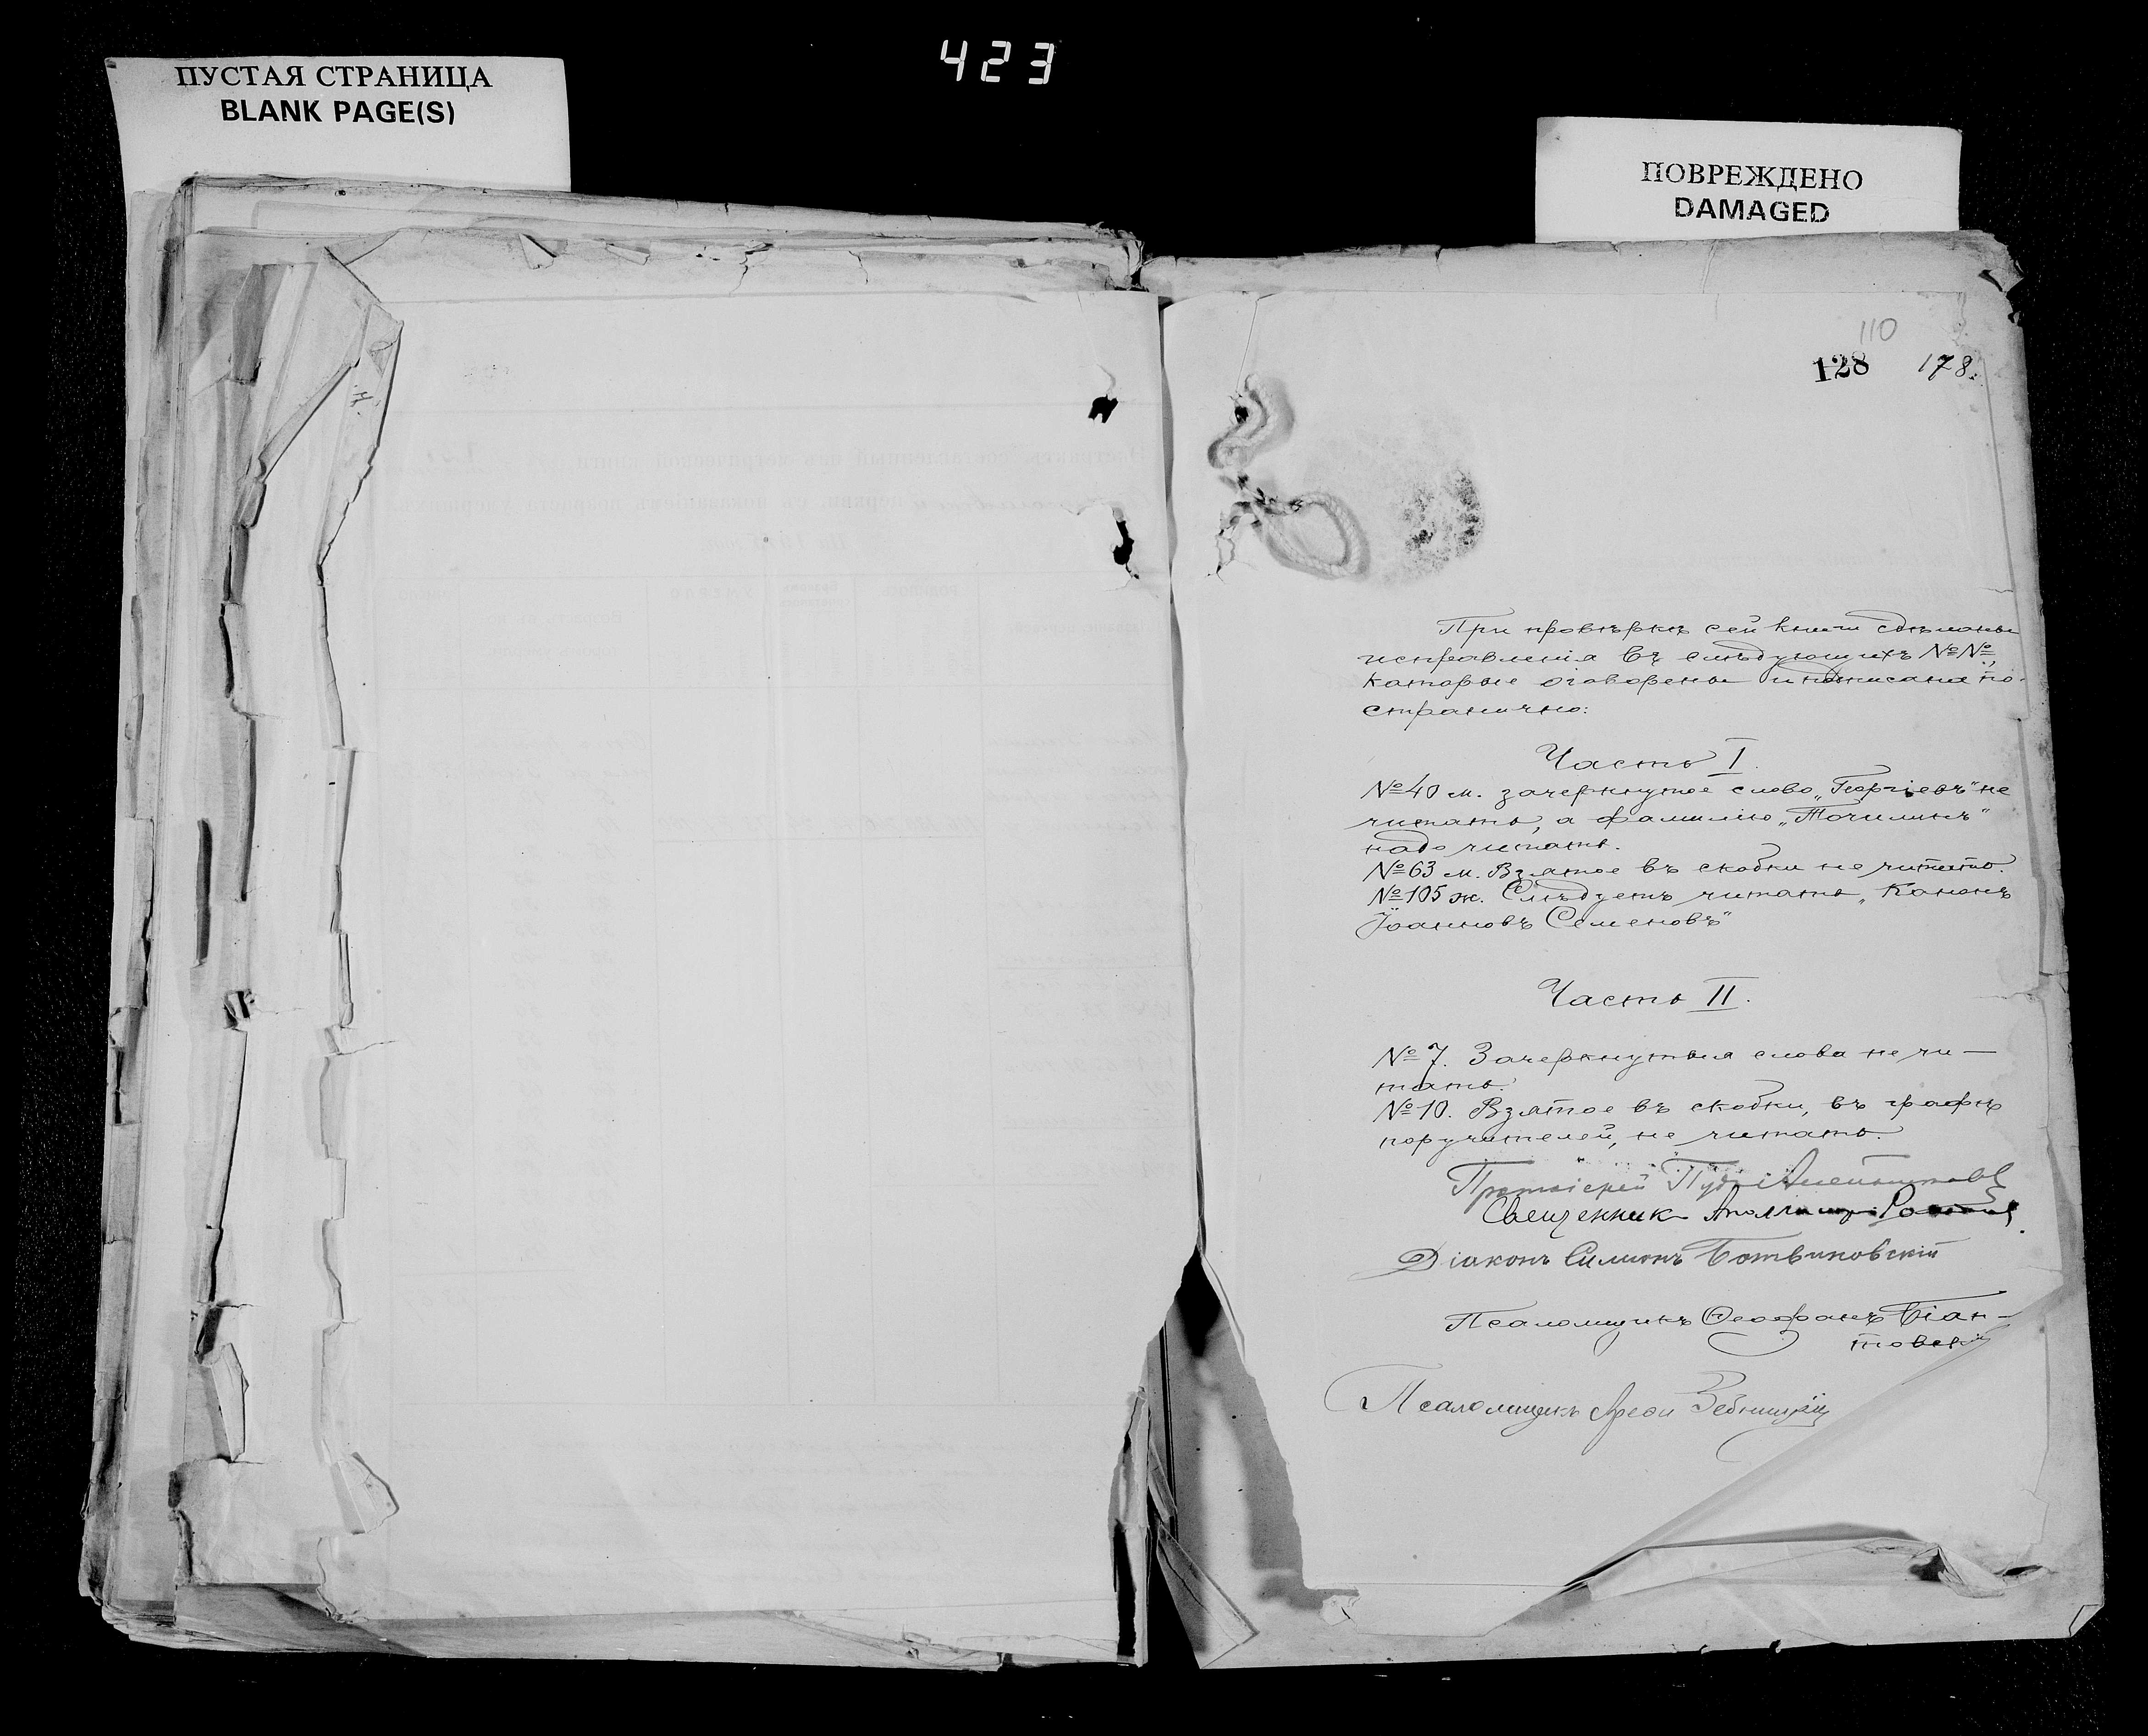 423
ПУСТАЯ СТРАНИЦА
BLANK PAGE(S)
ПОВРЕЖДЕНО
DAMAGED
110
128 178.
При провѣркѣ сей книги сдѣланы
исправленія въ слѣдующихъ №№,
которые оговорены и подписаны по-
странично:
Часть I.
№ 40 м. зачеркнутое слово „Георгіевъ" не
читать, а фамилію „Точилинъ"
надо читать.
№ 63 м. Взятое въ скобки не читать.
№ 105 ж. Слѣдуетъ читать „Канонъ
Іоанновъ Семеновъ"
Часть II.
№ 7. Зачеркнутыя слова не чи—
тать.
№ 10. Взятое въ скобки, въ графѣ
поручителей, не читать.
Протоіерей
Священник
Діаконъ Симеонъ Ботвиновскій
Псаломщикъ Ѳеофанъ Біан-
товскій
Псаломщикъ